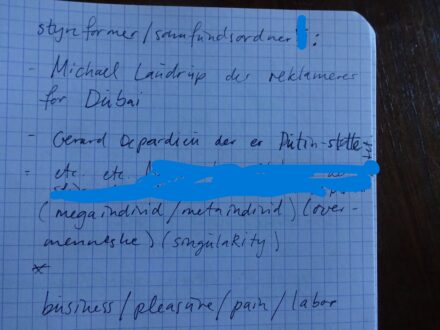 styreformer/samfundsordner:
- Michael Laudrup der reklamerer
for Dubai
- Gerard Depardieu der er Putin-støtte
- etc. etc.
(megaindivid/metaindivid) (over-
menneske) (singularity)
*
business/pleasure/pain/labor